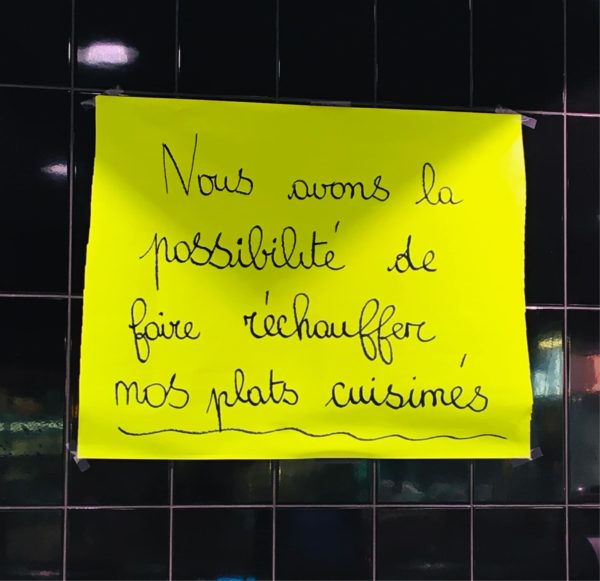 Nous avons la
possibilité de
faire réchauffer
nos plats cuisinés